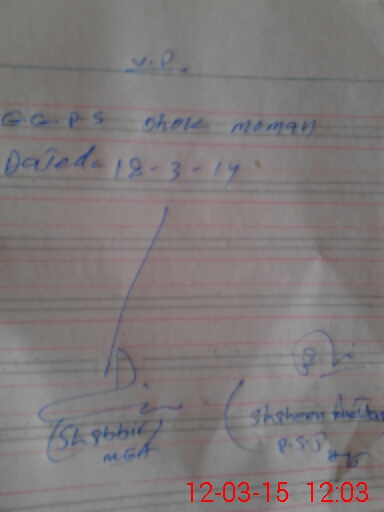 V.P.
G.G.P.S Dhok moman
Dated. 12-3-14
(Shabbir)
MEA
(Shaheen
P.S.T
12-03-15 12:03